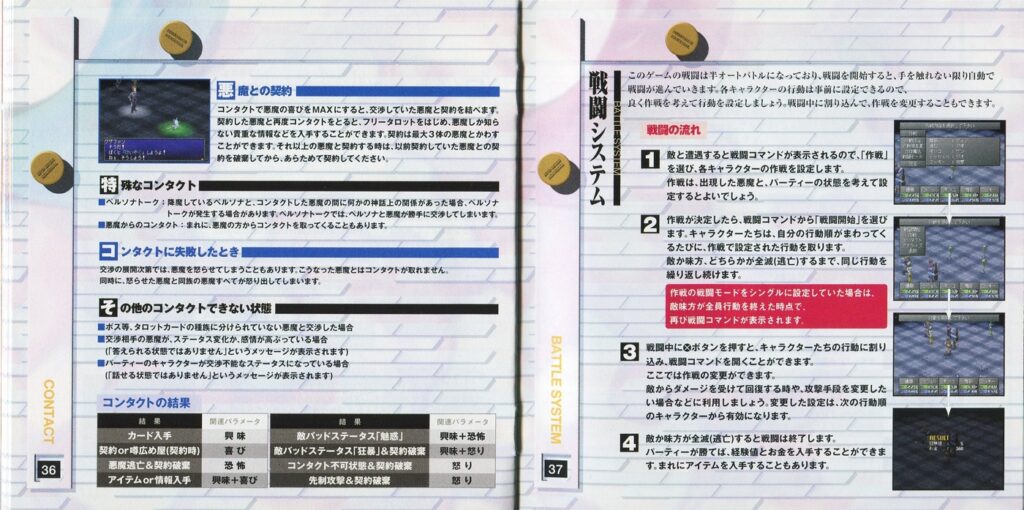 悪魔との契約
コンタクトで悪魔の喜びをMAXにすると、交渉していた悪魔と契約を結べます。
契約した悪魔と再度コンタクトをとると、フリータロットをはじめ、悪魔しか知らない貴重な情報などを入手することができます。契約は最大3体の悪魔とかわす
ことができます。それ以上の悪魔と契約する時は、以前契約していた悪魔との契
約を破棄してから、あらためて契約してください。
特殊なコンタクト
■ペルソナトーク：降魔しているペルソナと、コンタクトした悪魔の間に何かの神話上の関係があった場合、ペルソナ
トークが発生する場合があります。ペルソナトークでは、ペルソナと悪魔が勝手に交渉してしまいます。
■悪魔からのコンタクト：まれに、悪魔の方からコンタクトを取ってくることもあります。
コンタクトに失敗したとき
交渉の展開次第では、悪魔を怒らせてしまうこともあります。こうなった悪魔とはコンタクトが取れません。
同時に、怒らせた悪魔と同族の悪魔すべてが怒り出してしまいます。
その他のコンタクトできない状態
■ボス等、タロットカードの種族に分けられていない悪魔と交渉した場合
■交渉相手の悪魔が、ステータス変化か、感情が高ぶっている場合
（「答えられる状態ではありません」というメッセージが表示されます）
■パーティーのキャラクターが交渉不能なステータスになっている場合
（「話せる状態ではありません」というメッセージが表示されます）
コンタクトの結果
結果 関連パラメータ 結果 関連パラメータ
カード入手 興味 敵バッドステータス「魅惑」 興味＋恐怖
契約or噂広め屋（契約時） 喜び 敵バッドステータス「狂暴」＆契約破棄 興味＋怒り
悪魔逃亡＆契約破棄 恐怖 コンタクト不可状態＆契約破棄 怒り
アイテムor情報入手 興味＋喜び 先制攻撃＆契約破棄 怒り
CONTACT
36
戦闘システム
BATTLE SYSTEM
このゲームの戦闘は半オートバトルになっており、戦闘を開始すると、手を触れない限り自動で
戦闘が進んでいきます。各キャラクターの行動は事前に設定できるので、
良く作戦を考えて行動を設定しましょう。戦闘中に割り込んで、作戦を変更することもできます。
戦闘の流れ
1 敵と遭遇すると戦闘コマンドが表示されるので、「作戦」
を選び、各キャラクターの作戦を設定します。
作戦は、出現した悪魔と、パーティーの状態を考えて設
定するとよいでしょう。
2 作戦が決定したら、戦闘コマンドから「戦闘開始」を選び
ます。キャラクターたちは、自分の行動順がまわってく
るたびに、作戦で設定された行動を取ります。
敵か味方、どちらかが全滅（逃亡）するまで、同じ行動を
繰り返し続けます。
作戦の戦闘モードをシングルに設定していた場合は、
敵味方が全員行動を終えた時点で、
再び戦闘コマンドが表示されます。
3 戦闘中に⊗ボタンを押すと、キャラクターたちの行動に割り
込み、戦闘コマンドを開くことができます。
ここでは作戦の変更ができます。
敵からダメージを受けて回復する時や、攻撃手段を変更した
い場合などに利用しましょう。変更した設定は、次の行動順
のキャラクターから有効になります。
4 敵か味方が全滅（逃亡）すると戦闘は終了します。
パーティーが勝てば、経験値とお金を入手することができま
す。まれにアイテムを入手することもあります。
RESULT
BATTLE SYSTEM
37